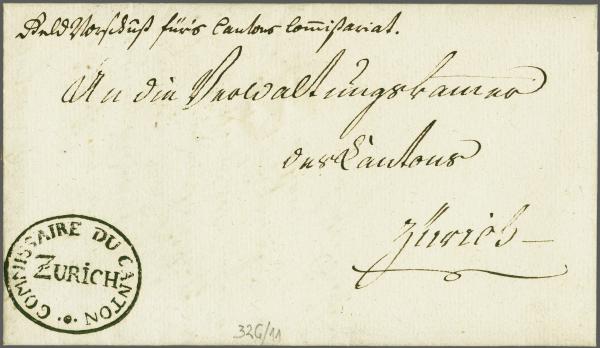 Geld Vorschuß für's Cantons Commißariat.
An die Verwaltungskamer
des Cantons
Zürich
COMMISSAIRE DU CANTON
ZURICH
326/11